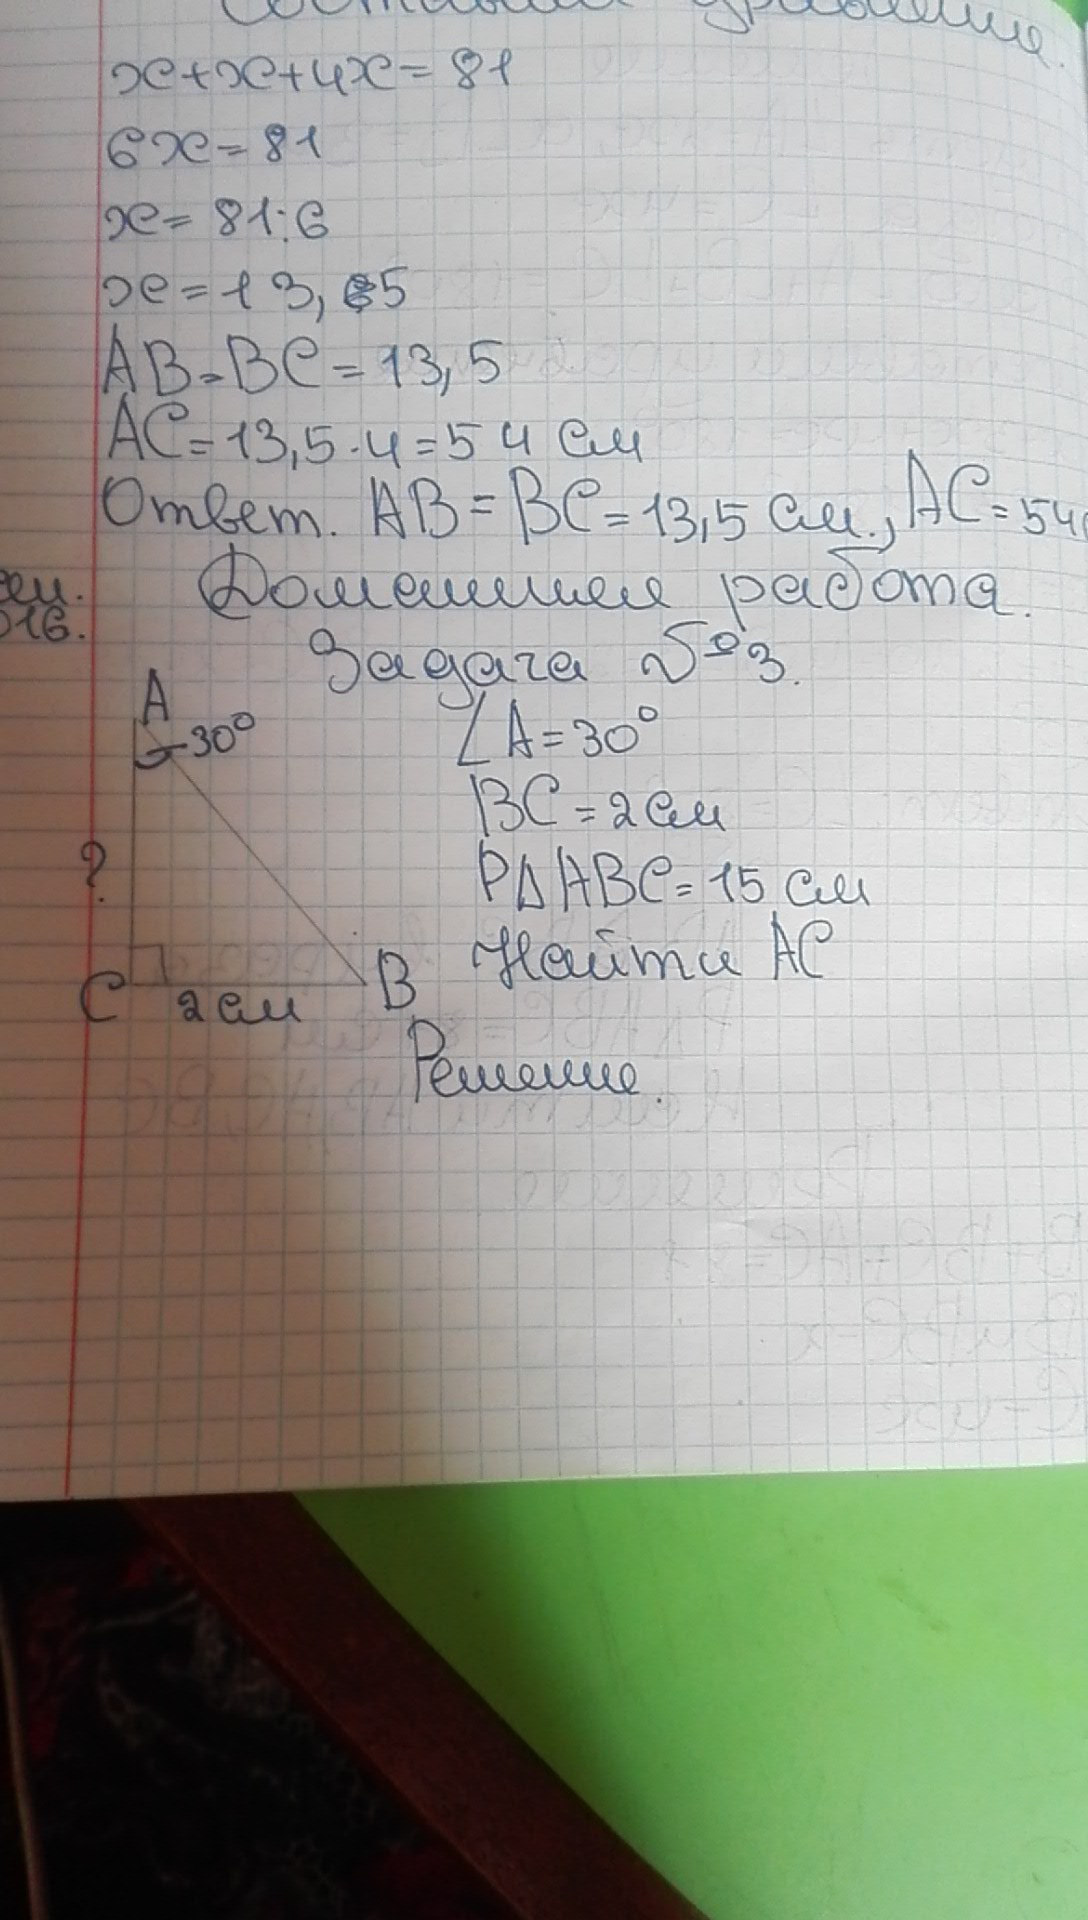 Составим уравнение.
x+x+4x=81
6x=81
x=81:6
x=13,5
AB=BC=13,5
AC=13,5·4=54 см
Ответ. AB=BC=13,5 см., AC=54
016.
Домашняя работа.
Задача №3.
A
30°
?
C
2 см
B
∠A=30°
BC=2 см
P∆ABC=15 см
Найти AC
Решение.